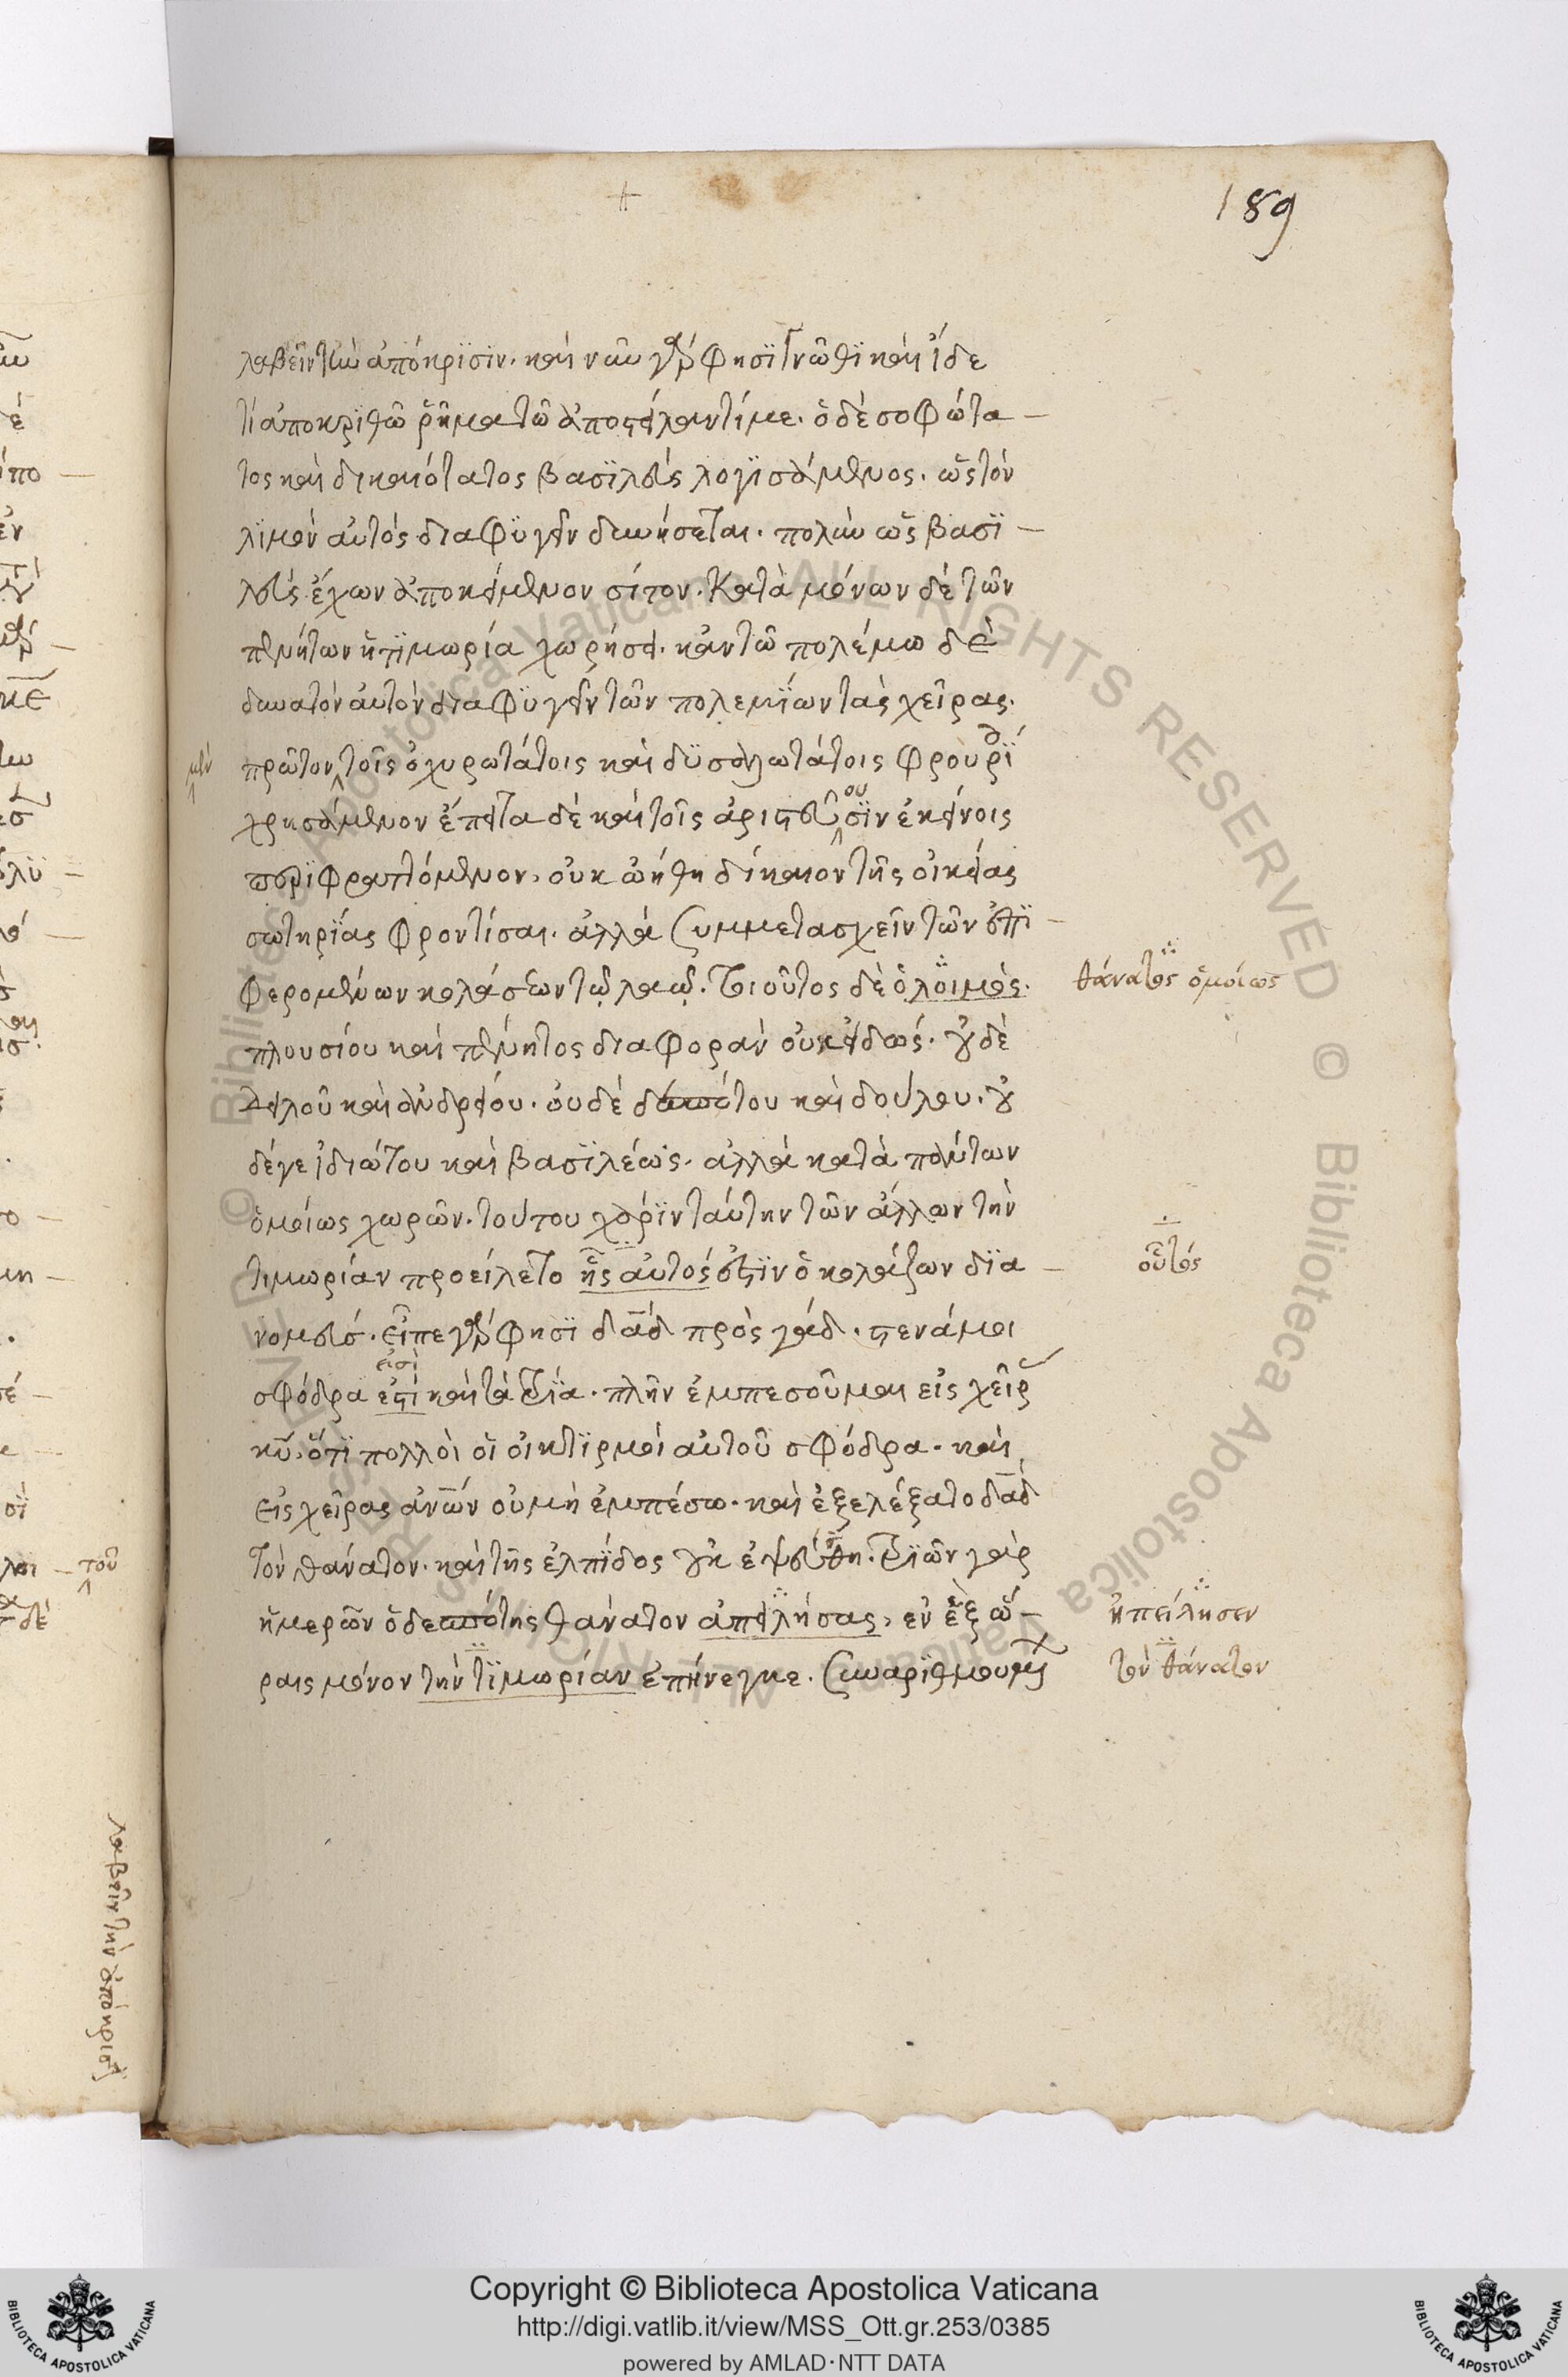 189
λαβεῖν τὴν ἀπόκρϊσϊν. καὶ νῦν γάρ φησϊ γνῶθϊ καὶ ἴδε
τί ἀποκριθῶ ῥῆμα τῶ ἀποστείλαντί με. ὁ δὲ σοφώτα –
τος καὶ δικαιότατος βασϊλεὺς λογϊσάμενος. ὡς τὸν
λϊμὸν αὐτὸς διαφϋγεῖν δυνήσεται. πολὺν ὡς βασϊ –
λεὺς ἔχων ἀποκείμενον σίτον. κατὰ μόνων δὲ τῶν
πενήτων ἡ τϊμωρία χωρήσει. κἀν τῶ πολέμω δὲ
δυνατὸν αὐτὸν διαφϋγεῖν τῶν πολεμΐων τὰς χεῖρας.
μὲν
πρῶτον τοῖς ὀχυρωτάτοις καὶ δϋσαλωτάτοις φρουρΐ
χρησάμενον ἔπειτα δὲ καὶ τοῖς ἀριστεύουσϊν ἐκείνοις
περϊφραττόμενον. οὐκ ὠήθη δίκαιον τῆς οἰκείας
σωτηρΐας φροντίσαι. ἀλλὰ συμμετασχεῖν τῶν ἐπϊ –
φερομένων κολάσεων τῷ λαῷ. τοιοῦτος δὲ ὁ λοιμός.
θάνατος ὁμοίως
πλουσίου καὶ πένητος διαφορὰν οὐκ εἰδώς. οὐδὲ
δειλοῦ καὶ ἀνδρείου. οὐδὲ δεσπότου καὶ δούλου. οὐ
δέ γε ἰδιώτου καὶ βασϊλέως. ἀλλὰ κατὰ πάντων
ὁμοίως χωρῶν. τούτου χάρϊν ταύτην τῶν ἄλλων τὴν
τιμωρίαν προείλετο ἧς αὐτός ἐστϊν ὁ κολάζων δϊα –
οὗτός
νομεύς. εἶπε γάρ φησϊ δᾱδ πρὸς γάδ. στενά μοι
εἰσὶ
σφόδρα ἐστὶ καὶ τὰ τρΐα. πλὴν ἐμπεσοῦμαι εἰς χεῖρ
κῡ. ὅτϊ πολλοὶ οἱ οἰκτϊρμοὶ αὐτοῦ σφόδρα. καὶ
εἰς χεῖρας ἀνῶν οὐ μὴ ἐμπέσω. καὶ ἐξελέξατο δᾱδ
τὸν θάνατον. καὶ τῆς ἐλπΐδος οὐκ ἐψεύσθη. τρϊῶν γὰρ
ἡμερῶν ὁ δεσπότης θάνατον ἀπειλήσας, ἐν ἓξ ὥ –
ἠπείλησεν
ραις μόνον τὴν τϊμωρίαν ἐπήνεγκε.
τὸν θάνατον
τοῦ
λαβεῖν τὴν ἀπόκρισϊν
Copyright © Biblioteca Apostolica Vaticana
http://digi.vatlib.it/view/MSS_Ott.gr.253/0385
powered by AMLAD·NTT DATA
BIBLIOTECA APOSTOLICA VATICANA
BIBLIOTECA APOSTOLICA VATICANA
© Biblioteca Apostolica Vaticana ALL RIGHTS RESERVED
© Biblioteca Apostolica Vaticana ALL RIGHTS RESERVED